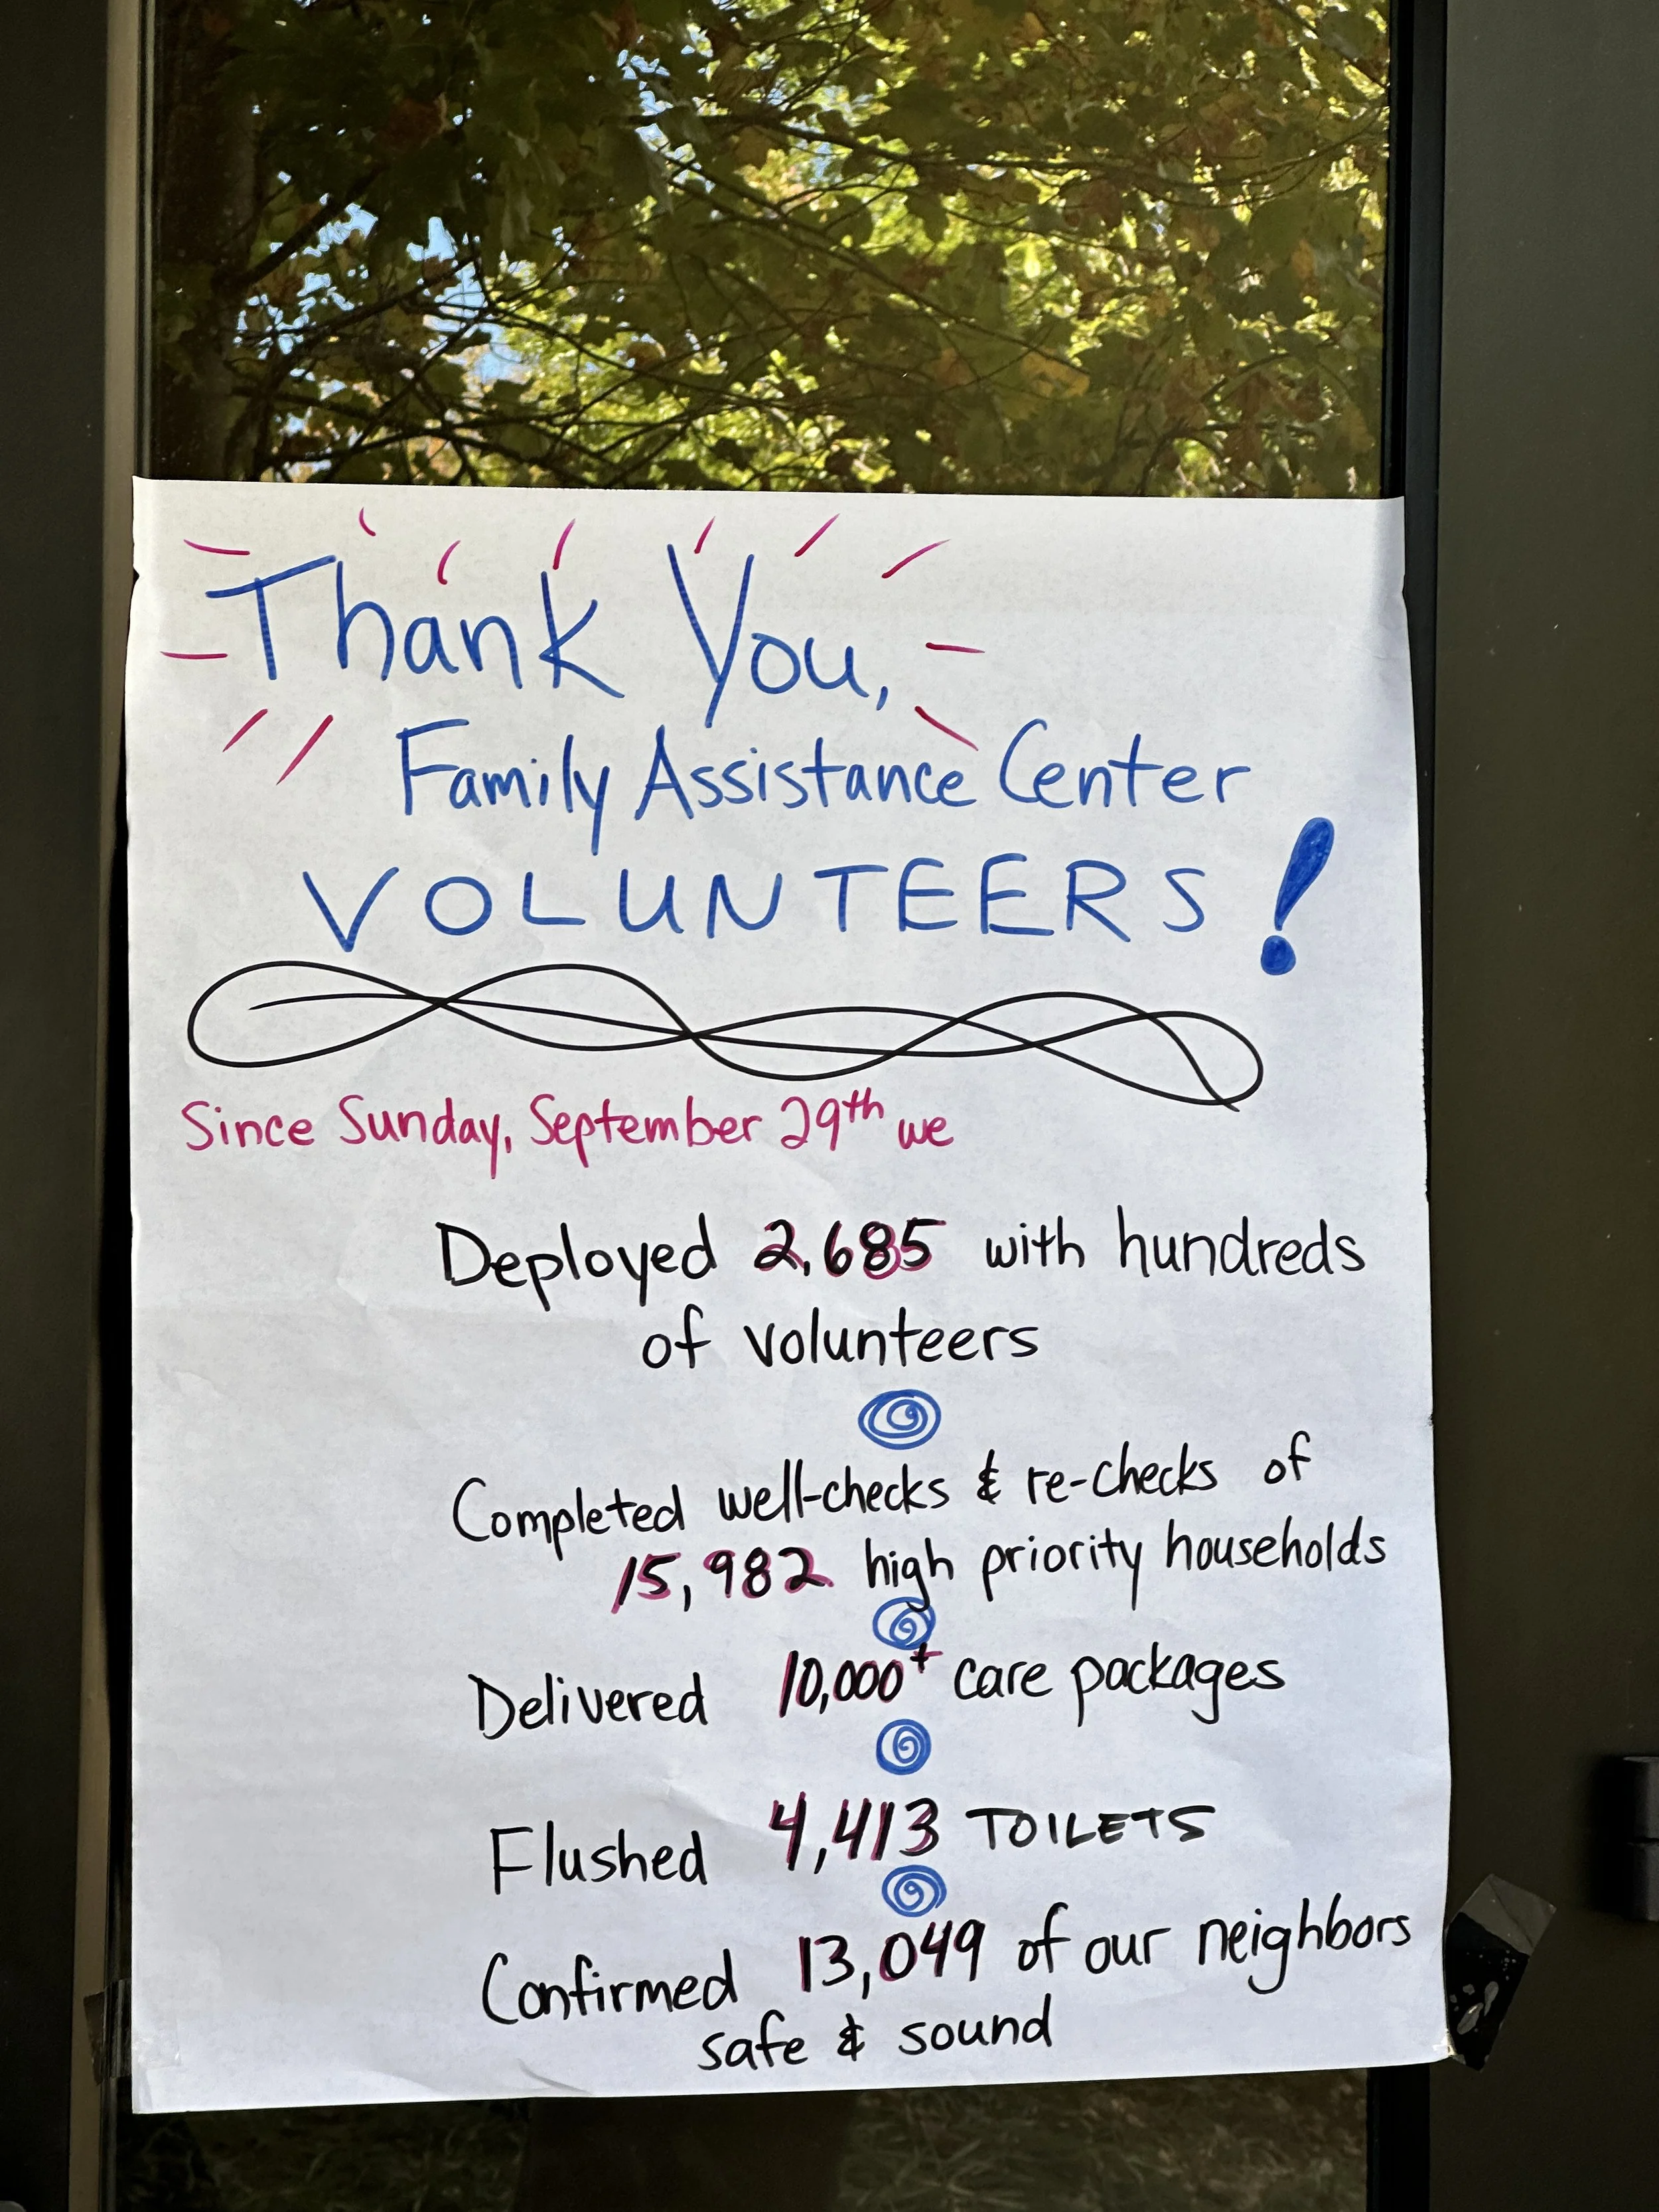 Thank You,
Family Assistance Center
VOLUNTEERS!
Since Sunday, September 29th we
Deployed 2,685 with hundreds
of volunteers
Completed well-checks & re-checks of
15,982 high priority households
Delivered 10,000+ care packages
Flushed 4,413 TOILETS
Confirmed 13,049 of our neighbors
safe & sound